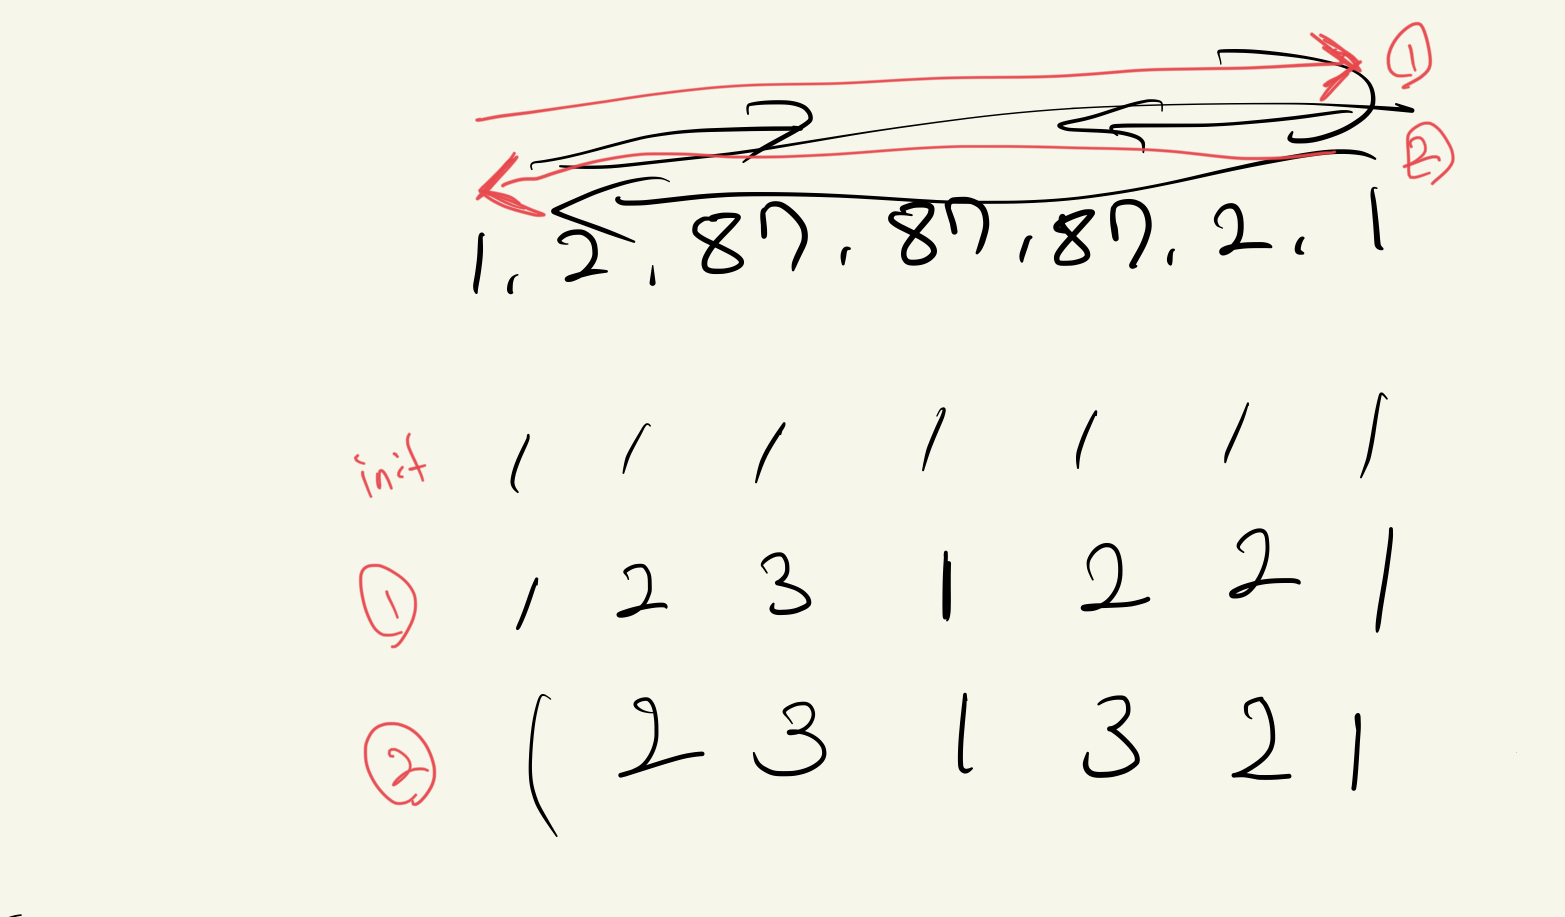 ①
②
1, 2, 87, 87, 87, 2, 1
init 1 1 1 1 1 1 1
① 1 2 3 1 2 2 1
② 1 2 3 1 3 2 1